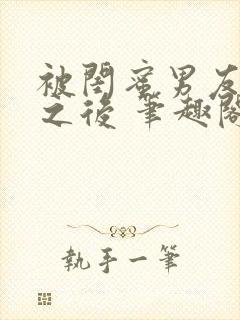 被閨蜜男友
之後 筆趣閣
執手一筆